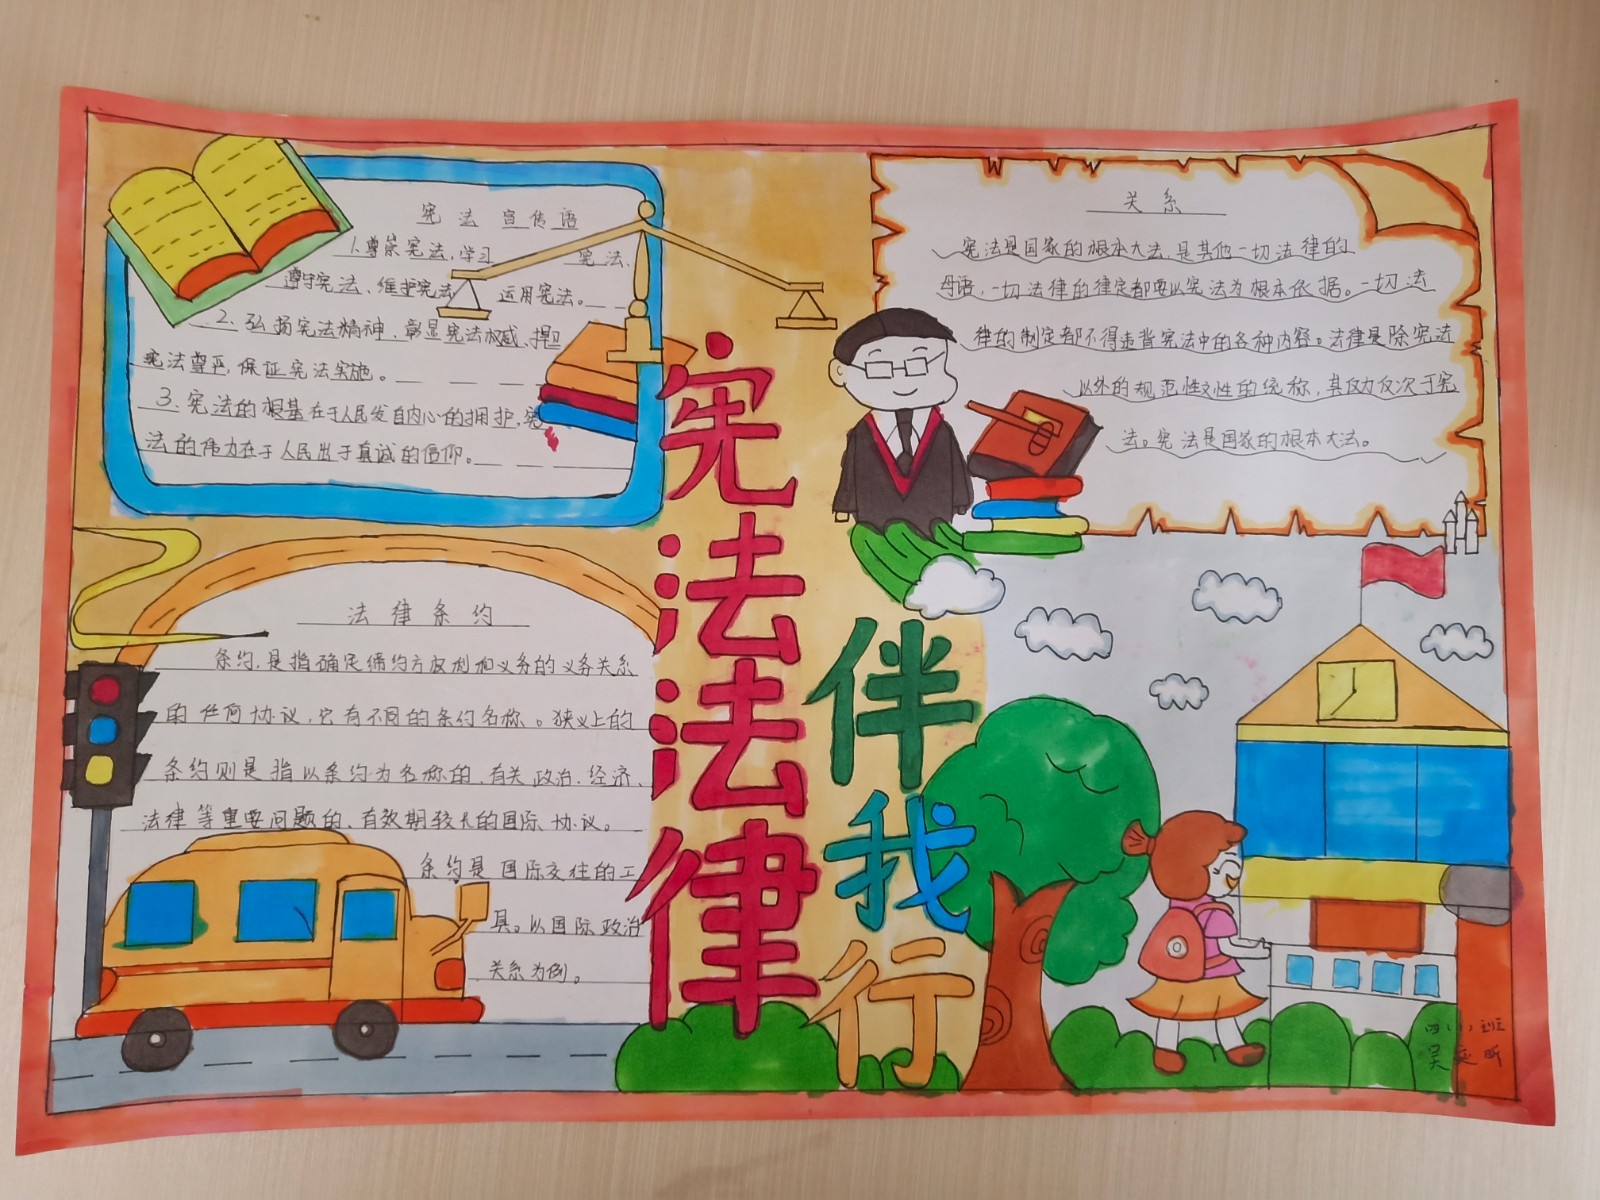 宪法宣传语
1.尊崇宪法,学习宪法、
遵守宪法、维护宪法运用宪法。
2.弘扬宪法精神,彰显宪法权威、捍卫
宪法尊严,保证宪法实施。
3.宪法的根基在于人民发自内心的拥护,宪
法的伟力在于人民出于真诚的信仰。
法律条约
条约,是指确定缔约方权利和义务的义务关系
的任何协议,它有不同的条约名称。狭义上的
条约则是指以条约为名称的,有关政治、经济、
法律等重要问题的,有效期较长的国际协议。
条约是国际交往的工
具。以国际政治
关系为例。
宪法法律
伴我行
关系
宪法是国家的根本大法,是其他一切法律的
母语,一切法律的律定都要以宪法为根本依据。一切法
律的制定都不得违背宪法中的各种内容。法律是除宪法
以外的规范性文性的统称,其效力仅次于宪
法。宪法是国家的根本大法。
四(1)班
吴 昕